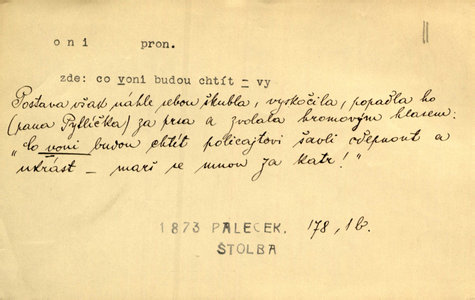 oni pron.
zde: co voni budou chtít – vy
Postava však náhle sebou škubla, vyskočila, popadla ho
(pana Pytlíčka) za prsa a zvolala hromovým hlasem:
"Co voni budou chtít policajtovi šavli odepnout a
ukrást – marš se mnou za katr!"
1873 PALECEK. 178, 1b.
ŠTOLBA